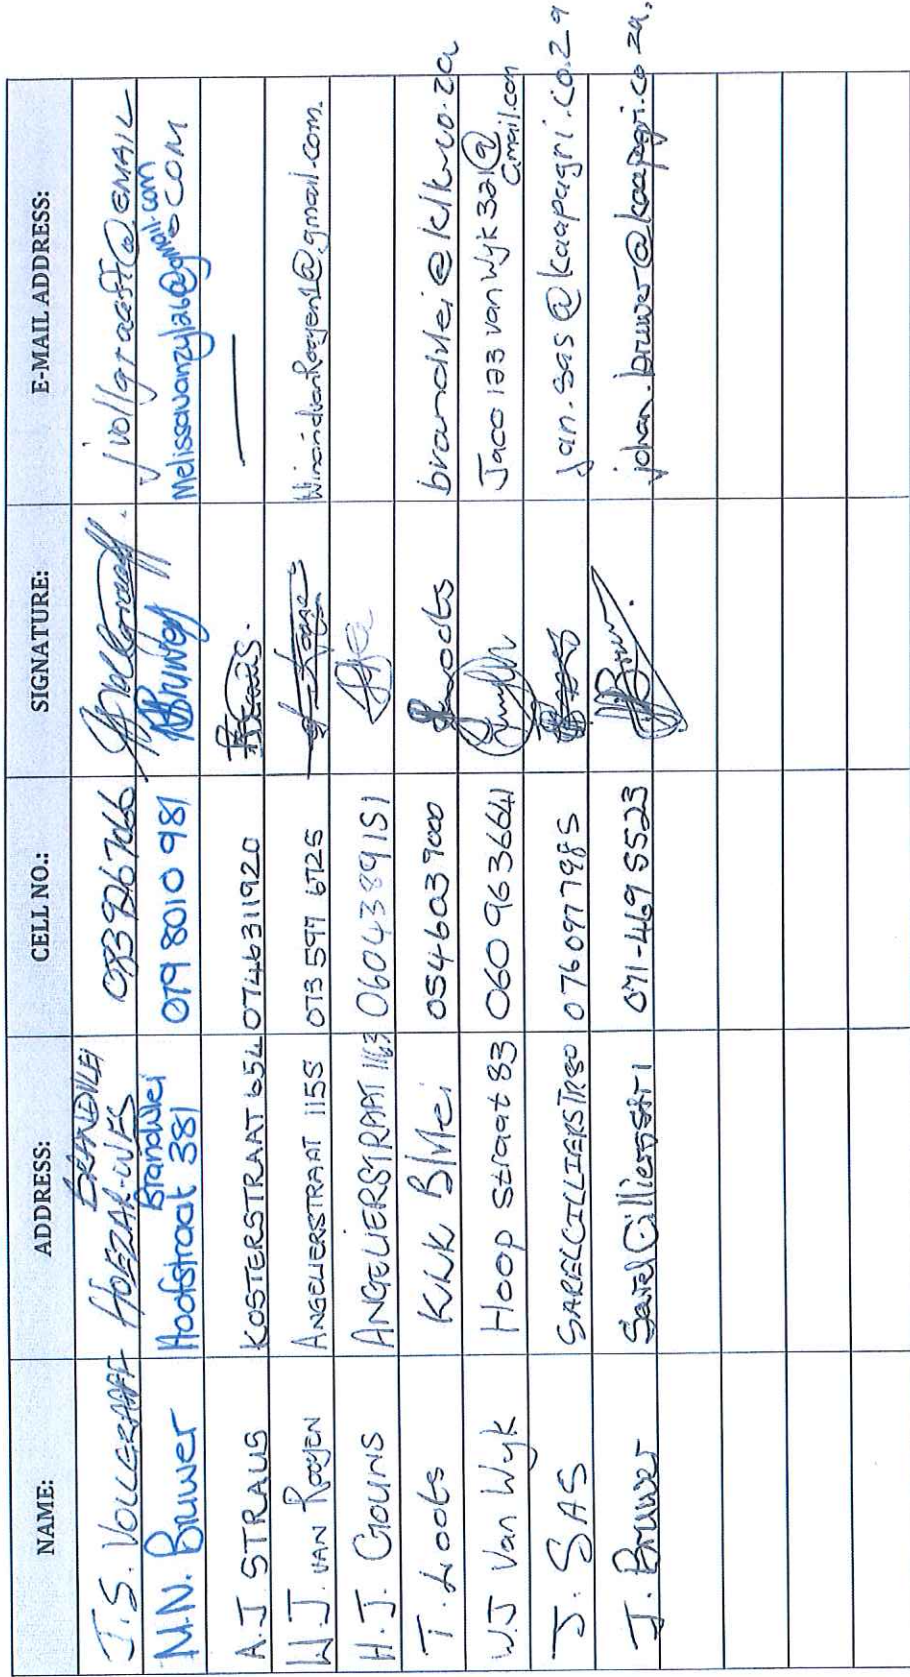 NAME: ADDRESS: CELL NO.: SIGNATURE: E-MAIL ADDRESS:
J.S. VOLLGRAAFF BRANDVLEI HOEZAR-WES 0839267066 jvollgraaff@GMAIL.COM
M.N. Bruwer Brandvlei Hoofstraat 381 079 8010 981 MBruwer Melissavanzyl26@gmail.com
A.J STRAUS KOSTERSTRAAT 654 0746311920 —
W.J. VAN ROOYEN ANGELIERSTRAAT 1155 073 597 6725 WinandvanRooyen1@gmail.com.
H.J. GOUNS ANGELIERSTRAAT 1163 0604389151
T. Loots KLK B/vlei 0546039000 Loots brandvlei@klk.co.za
W.J Van Wyk Hoop straat 83 060 9636641 Jaco123vanWyk321@
Gmail.com
J. SAS SARELCILLIERSTR80 0760977985 jan.sas@kaapagri.co.za
J. Bruwer Sarel Cilliers 071-469 5523 johan.bruwer@kaapagri.co.za.